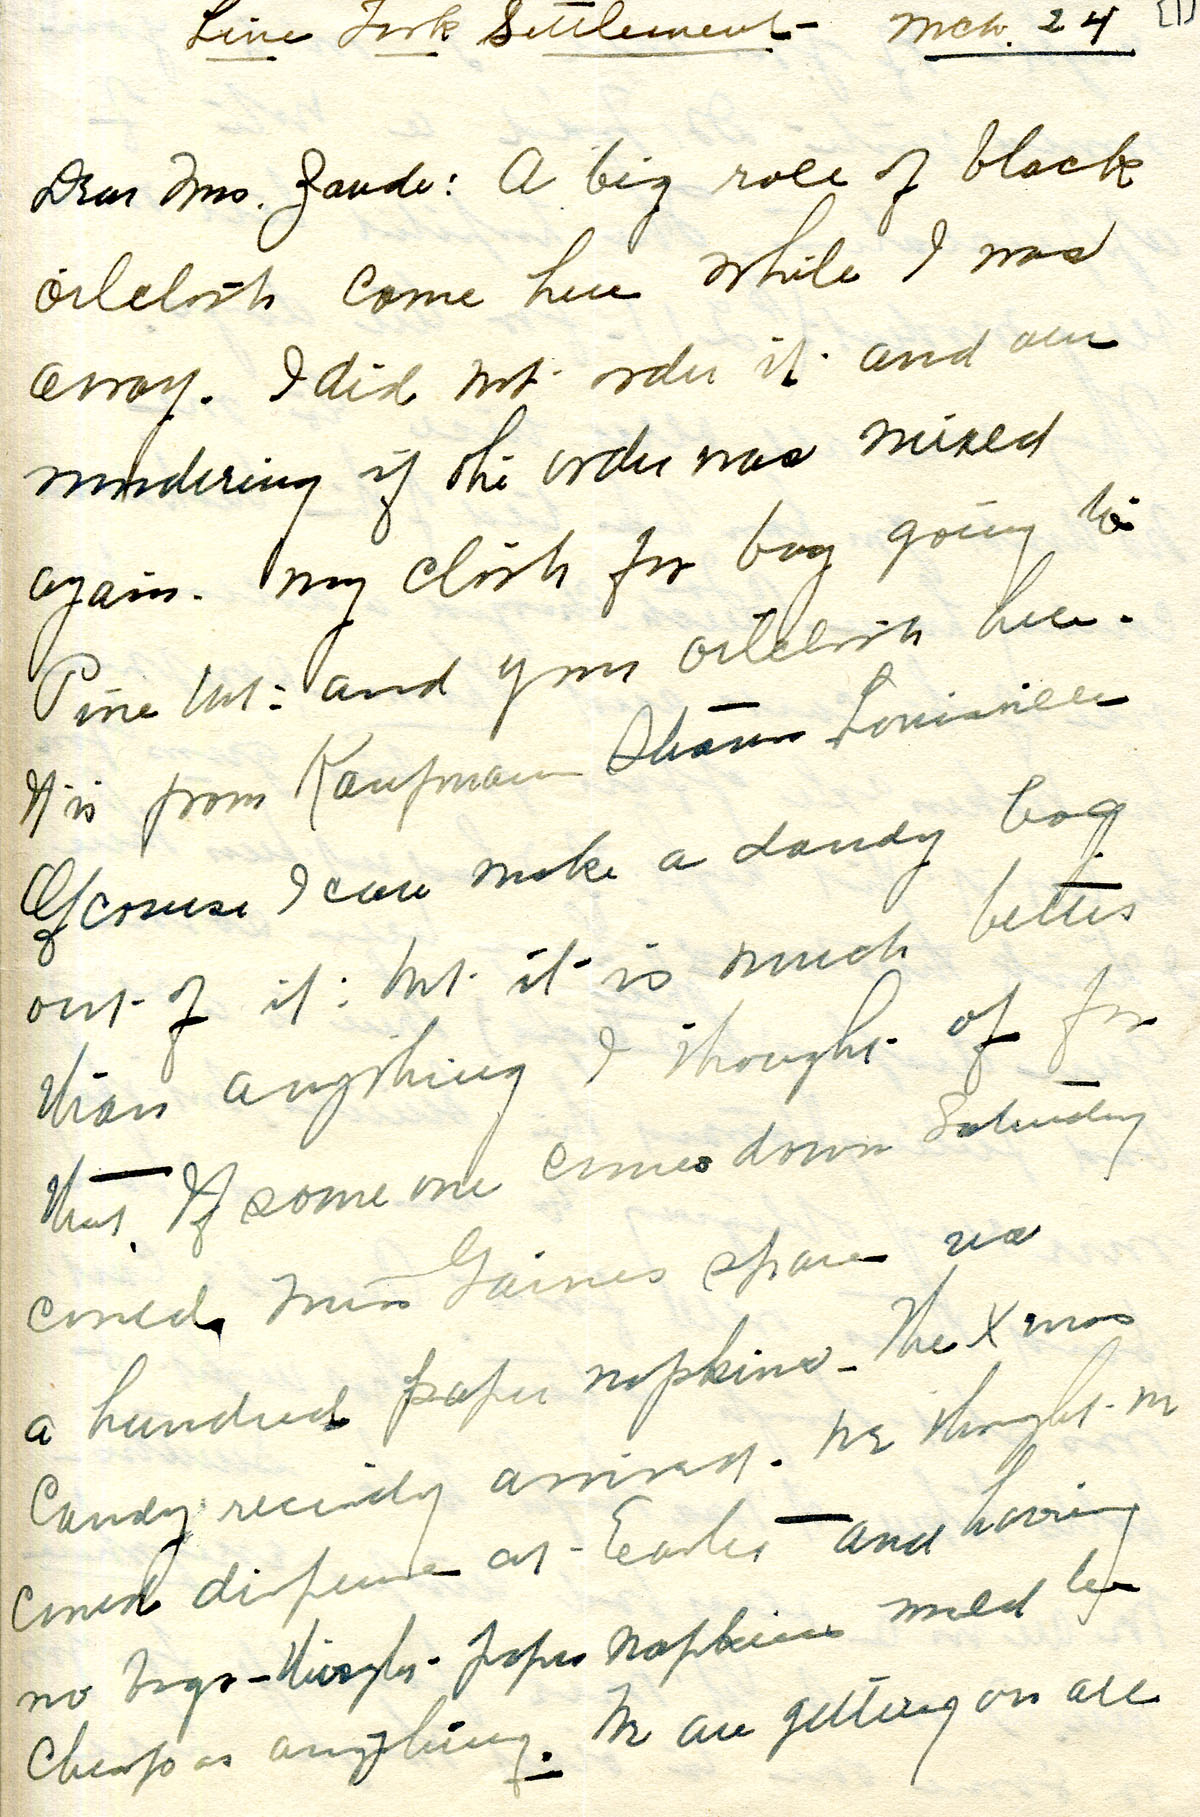 Line Fork Settlement - Mch. 24 [1]
Dear Mrs. Zande: A big role of black
oilcloth came here while I was
away. I did not order it and am
wondering if the order was mixed
again. My cloth for bag going to
Pine Mt: and your oilcloth here.
It is from Kaufmann Straus Louisville
Of course I can make a dandy bag
out of it: but it is much better
than anything I thought of for
that. If some one comes down Saturday
could Miss Gaines spare us
a hundred paper napkins - The Xmas
Candy recently arrived. We thought we
could dispense at Easter and having
no bags - thought paper napkins would be
cheap as anything. We are getting on all